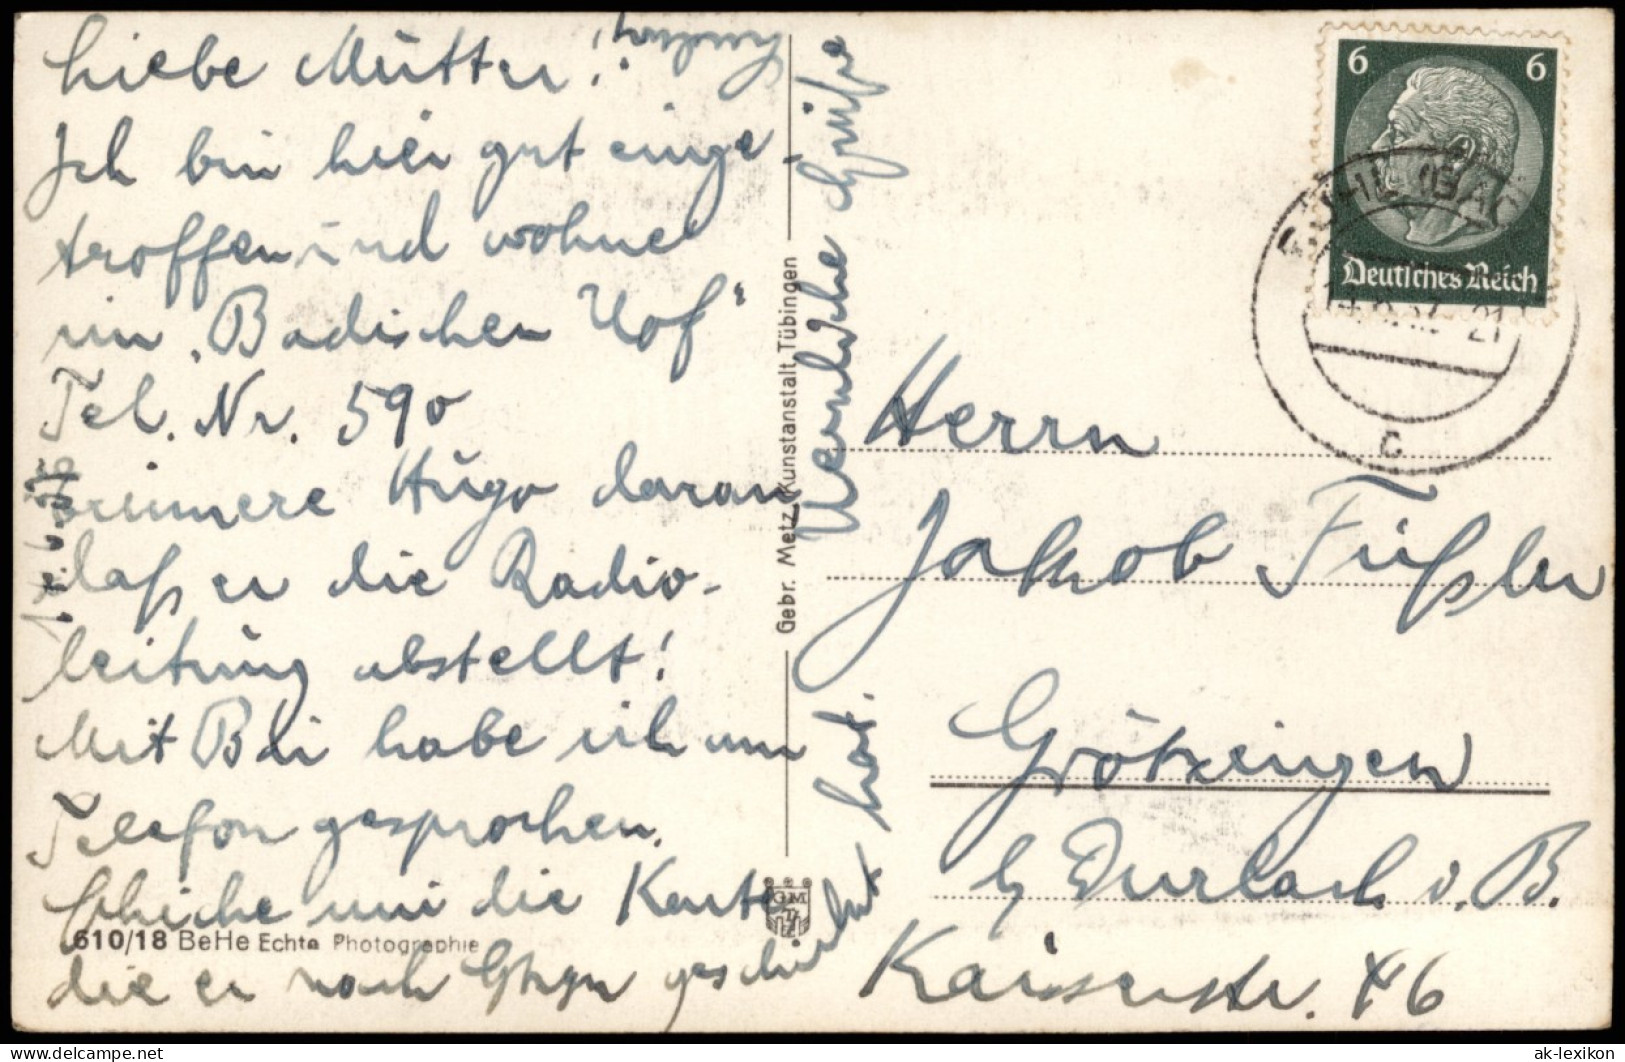 Liebe Mutter!
Ich bin hier gut einge-
troffen und wohne
im „Badischen Hof“
Tel. Nr. 590
Erinnere Hugo daran
daß er die Radio-
leitung abstellt!
Mit Bli habe ich am
Telefon gesprochen.
Schicke mir die Karte
die er nach geschickt
hat.
Herzliche Grüße
610/18 BeHe Echte Photographie
Gebr. Metz, Kunstanstalt, Tübingen
GM
6 6
Deutsches Reich
BÜHL (BADEN)
21
c
Herrn
Jakob Füßler
Grötzingen
b/ Durlach i. B.
Kaiserstr. 46
ak-lexikon.com